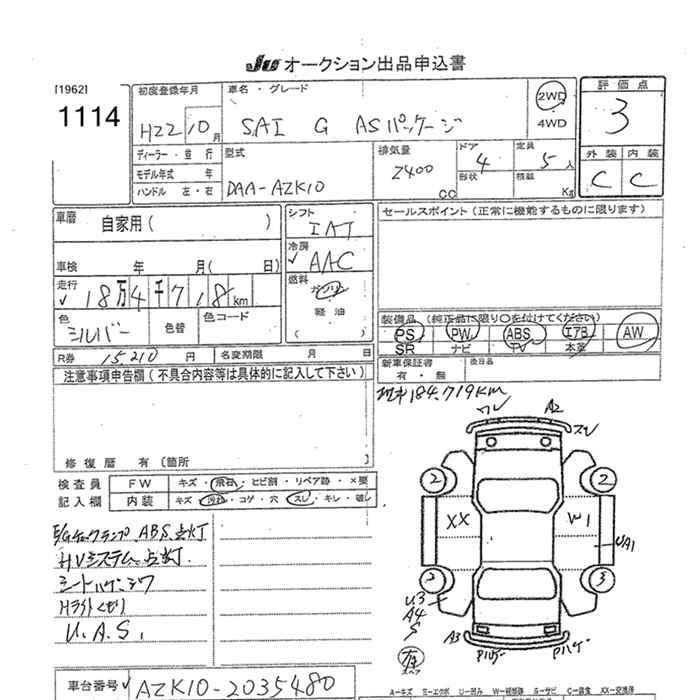 JU オークション出品申込書
[1962]
1114
初度登録年月
H22 10月
車名・グレード
SAI G ASパッケージ
2WD
4WD
評価点
3
外装 内装
C C
ディーラー・並行
モデル年式 年
ハンドル 左・右
型式
DAA-AZK10
排気量
2400
CC
ドア
4
形状
定員
5人
積載
Kg
車歴
自家用( )
車検 年 月( 日)
走行
18万4千718km
色
シルバー
色替
色コード
シフト
IAT
冷房
AAC
燃料
ガソリン
軽油
( )
セールスポイント(正常に機能するものに限ります)
装備品(純正品に限り○を付けてください)
PS PW ABS エアB AW
SR ナビ TV 本革
新車保証書
有・無
後日品
R券 15,210 円
名変期限 月 日
注意事項申告欄(不具合内容等は具体的に記入して下さい)
修復歴 有(箇所
184,719km
検査員
記入欄
FW キズ・飛石・ヒビ割・リペア跡・×要
内装 キズ・汚れ・コゲ・穴・スレ・キレ・破レ
E/Gチェックランプ、ABS点灯
HVシステム点灯
シートハゲ・シワ
Hライトくもり
U.A.S.
ワレ
A2
スリ
2
2
XX
W1
UA1
2
3
U3
A4
S
A3
Pハゲ
Pハゲ
有
スペア
車台番号
AZK10-2035480
A-キズ E-エクボ U-凹み W-補修跡 S-サビ C-腐食 XX-交換済